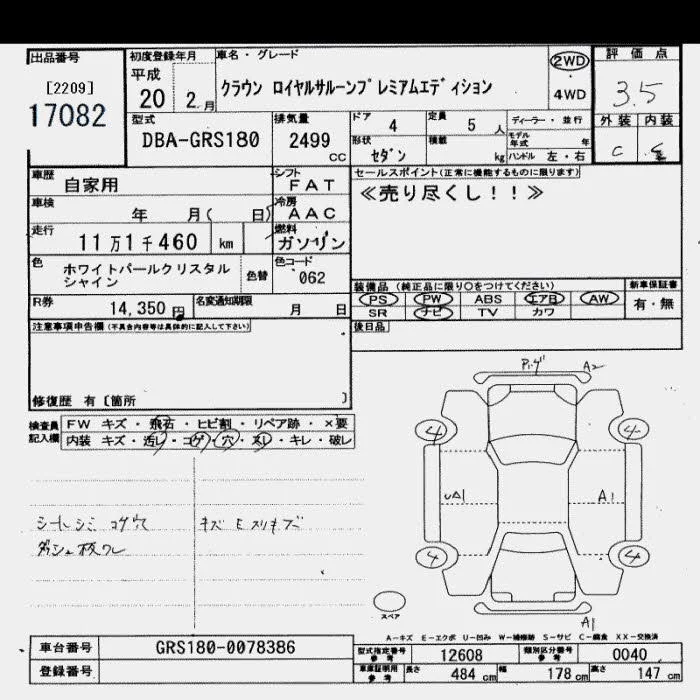 出品番号 初度登録年月 車名・グレード 評価点
[2209] 平成 クラウン ロイヤルサルーンプレミアムエディション 2WD 3.5
17082 20 2月 4WD
型式 排気量 ドア 4 定員 5人 ディーラー・並行 外装 内装
DBA-GRS180 2499 cc 形状 セダン 積載 kg モデル年式 年 ハンドル 左・右 C C
車歴 自家用 シフト FAT セールスポイント(正常に機能するものに限ります)
車検 年 月( 日) 冷房 AAC ≪売り尽くし!!≫
走行 11万1千460 km 燃料 ガソリン
色 ホワイトパールクリスタルシャイン 色替 色コード 062
装備品 (純正品に限り○をつけてください) 新車保証書
PS PW ABS エアB AW 有・無
SR ナビ TV カワ
R券 14,350円 名変通知期限 月 日
注意事項申告欄(不具合内容等は具体的に記入して下さい) 後日品
修復歴 有〔箇所 〕
検査員記入欄 FW キズ・飛石・ヒビ割・リペア跡・×要
内装 キズ・汚レ・コゲ・穴・スレ・キレ・破レ
A2
4 4
A1
シートシミ コゲ穴 キズ E スリキズ
4 4
スペア
A1
A-キズ E-エクボ U-凹み W-補修跡 S-サビ C-腐食 XX-交換済
車台番号 GRS180-0078386 型式指定番号 参考 12608 類別区分番号 参考 0040
登録番号 車庫証明用 参考 長さ 484cm 幅 178cm 高さ 147cm